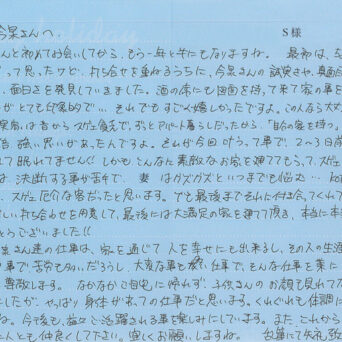 今泉さんへ. S様
んと初めてお会いしてから、もう一年と半にもなりますね。 最初は、
って思ったけど、打ち合せを重ねるうちに、今泉さんの誠実さ、真面目
、面白さを発見していきました。酒の席にも図面を持って来て家の事を
がとても印象的で… それでもすごく嬉しかったですよ。この人なら大
実家は昔から で、ずっとアパート暮らしだったから「自分の家を持つ。」
倍強い思いがあったんです。それが今回叶う。って事で、2〜3日前
て眠れてません!! しかもこんなに素敵なお家を建ててもらって、
は、決断する事が苦手で、 妻はグズグズといつまでも悩む…
、スゲェ厄介な客だったと思います。でも最後までそれに付き合ってくれて
しい打ち合わせを用意して、最後には大満足の家を建てて頂き、本当に本
とうございました!!
泉さん達の仕事は、家を通じて人を幸せにも出来るし、その人の生活
事で苦労も多いだろうし、大変な事も多い仕事で、そんな仕事を楽に
尊敬します。なかなかご自宅に帰れず、お子供さんのお顔も見れてな
したが、やっぱり身体があっての仕事だと思います。くれぐれも体調に
ね。今後も、益々ご活躍される事を楽しみにしています。また、これから
二人とも仲良くして下さい。宜しくお願いしますね。 乱筆にて失礼致